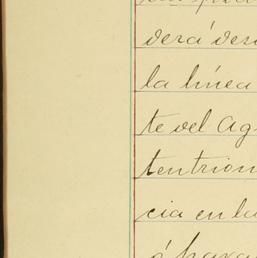 verá des
la línea
te del Ag
tentrion
cia en la